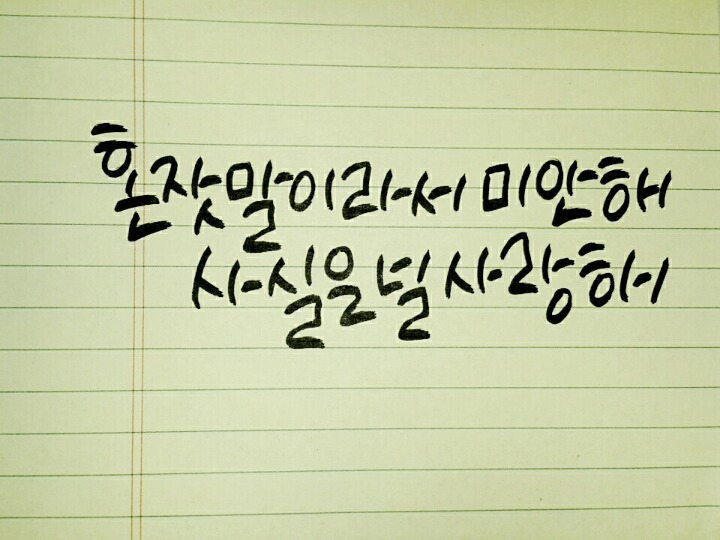 혼잣말이라서 미안해
사실을 널 사랑해